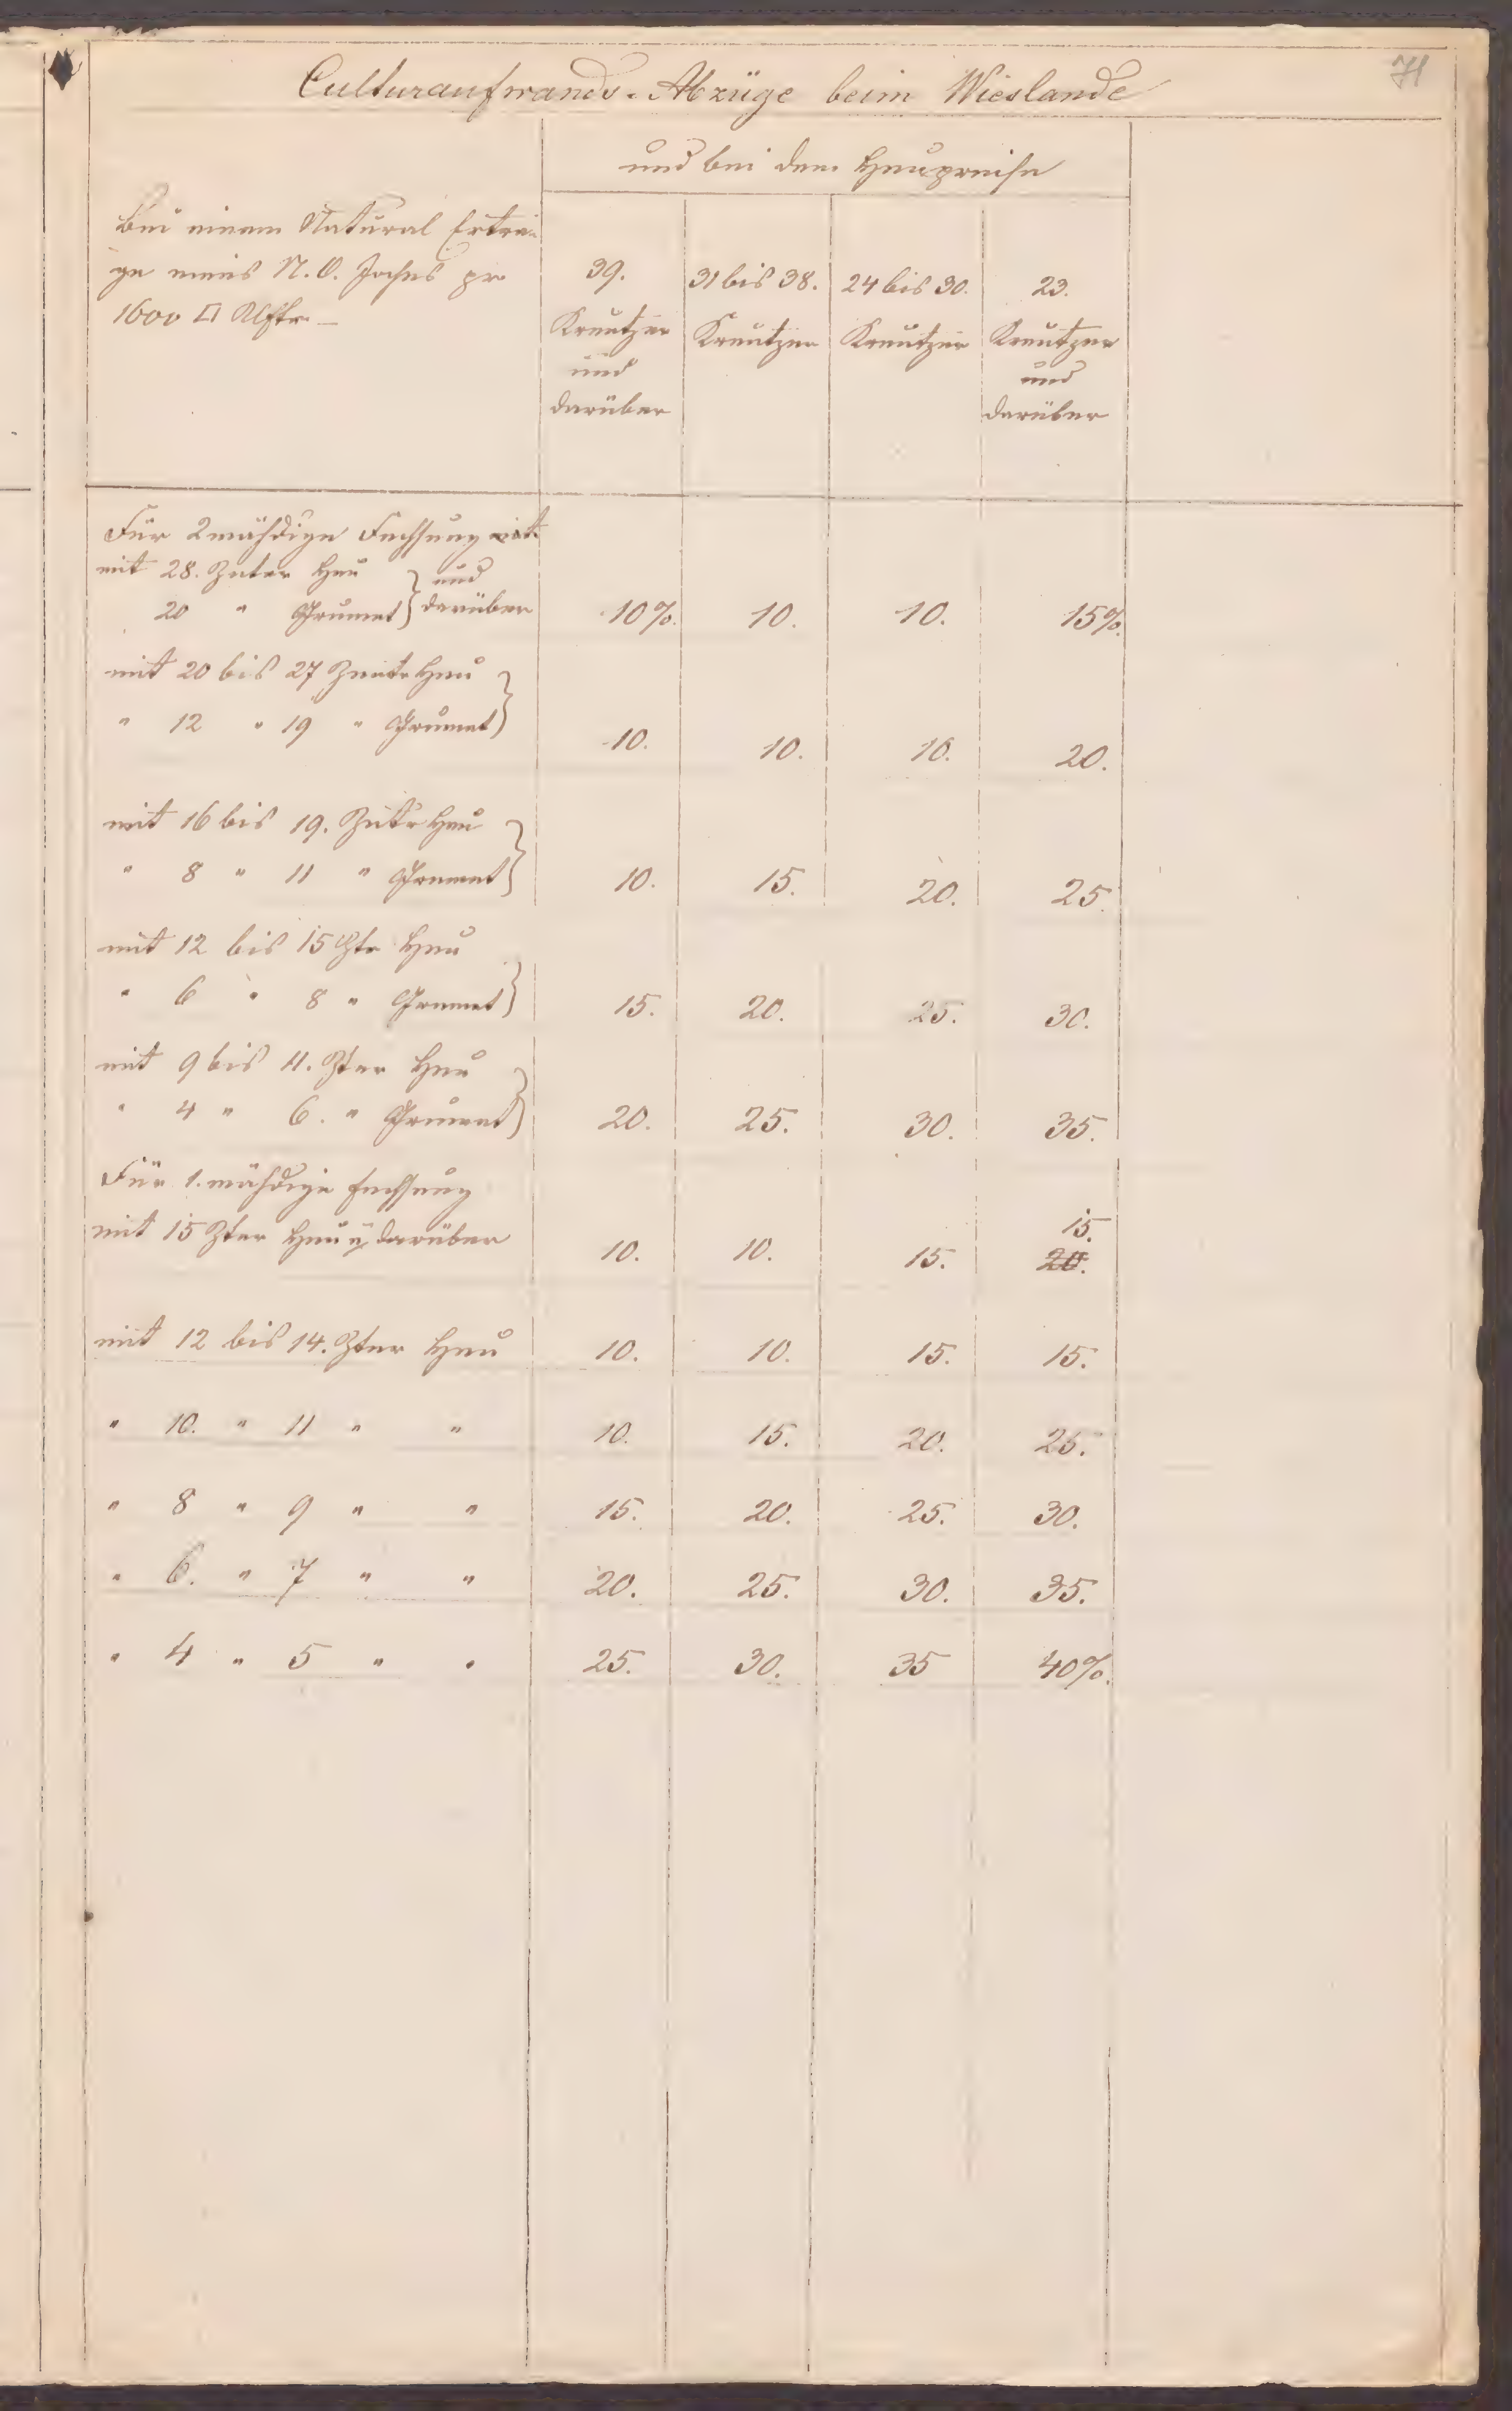 71
Culturaufwands-Abzüge beim Wieslande
und bei dem Heupreise
Bei einem Natural Ertra-
ge eines N. O. Joches pr
1600 □ Klftr
39. Kreutzer und darüber
31 bis 38. Kreutzer
24 bis 30. Kreutzer
23. Kreutzer und darüber
Für 2mähdige Fechsung mit
mit 28. Zntr Heu } und
20 " Grumet } darüber 10%. 10. 10. 15%.
mit 20 bis 27 Zentr Heu }
" 12 " 19 " Grumet } 10. 10. 10. 20.
mit 16 bis 19. Zntr Heu }
" 8 " 11 " Grumet } 10. 15. 20. 25.
mit 12 bis 15 Ztr Heu
" 6 " 8 " Grumet } 15. 20. 25. 30.
mit 9 bis 11. Zter Heu }
" 4 " 6. " Grumet } 20. 25. 30. 35.
Für 1.mähdige Fechsung
15.
mit 15 Zter Heu u darüber 10. 10. 15. 20.
mit 12 bis 14. Zter Heu 10. 10. 15. 15.
" 10. " 11 " " 10. 15. 20. 25.
" 8 " 9 " " 15. 20. 25. 30.
" 6. " 7 " " 20. 25. 30. 35.
" 4 " 5 " " 25. 30. 35 40%.